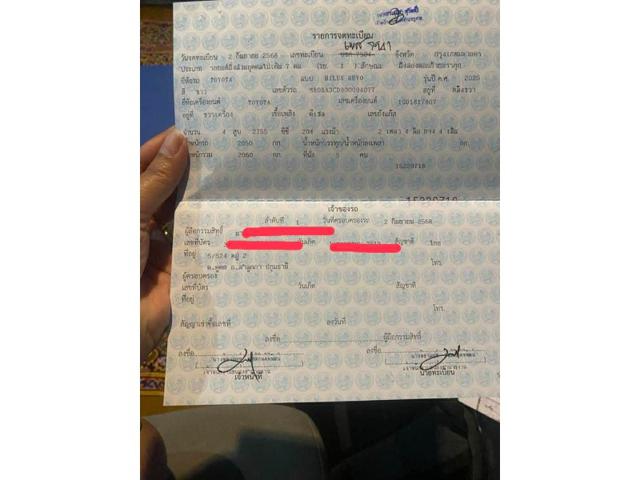 รายการจดทะเบียน
วันจดทะเบียน 2 กันยายน 2568 เลขทะเบียน จังหวัด กรุงเทพมหานคร
ประเภท รถยนต์นั่งส่วนบุคคลไม่เกิน 7 คน (รย. 1 ) ลักษณะ นั่งสองตอนท้ายบรรทุก
ยี่ห้อรถ TOYOTA แบบ HILUX REVO รุ่นปี ค.ศ. 2025
สี ขาว เลขตัวรถ อยู่ที่
ยี่ห้อเครื่องยนต์ TOYOTA เลขเครื่องยนต์
อยู่ที่ ขวาเครื่อง เชื้อเพลิง ดีเซล เลขถังแก๊ส
จำนวน 4 สูบ 2755 ซีซี 204 แรงม้า 2 เพลา 4 ล้อ ยาง 4 เส้น
น้ำหนักรถ 2060 กก. น้ำหนักบรรทุก/น้ำหนักลงเพลา กก.
น้ำหนักรวม 2060 กก. ที่นั่ง 5 คน
15229718
เจ้าของรถ
ลำดับที่ 1 วันที่ครอบครองรถ 2 กันยายน 2568
ผู้ถือกรรมสิทธิ์
เลขที่บัตร วันเกิด สัญชาติ ไทย
ที่อยู่ 5/524 หมู่ 2
ต.คูคต อ.ลำลูกกา ปทุมธานี โทร.
ผู้ครอบครอง
เลขที่บัตร วันเกิด สัญชาติ
ที่อยู่
โทร.
สัญญาเช่าซื้อเลขที่ ลงวันที่
ลงชื่อ ผู้ถือกรรมสิทธิ์
ลงชื่อ ลงชื่อ
เจ้าหน้าที่ นายทะเบียน